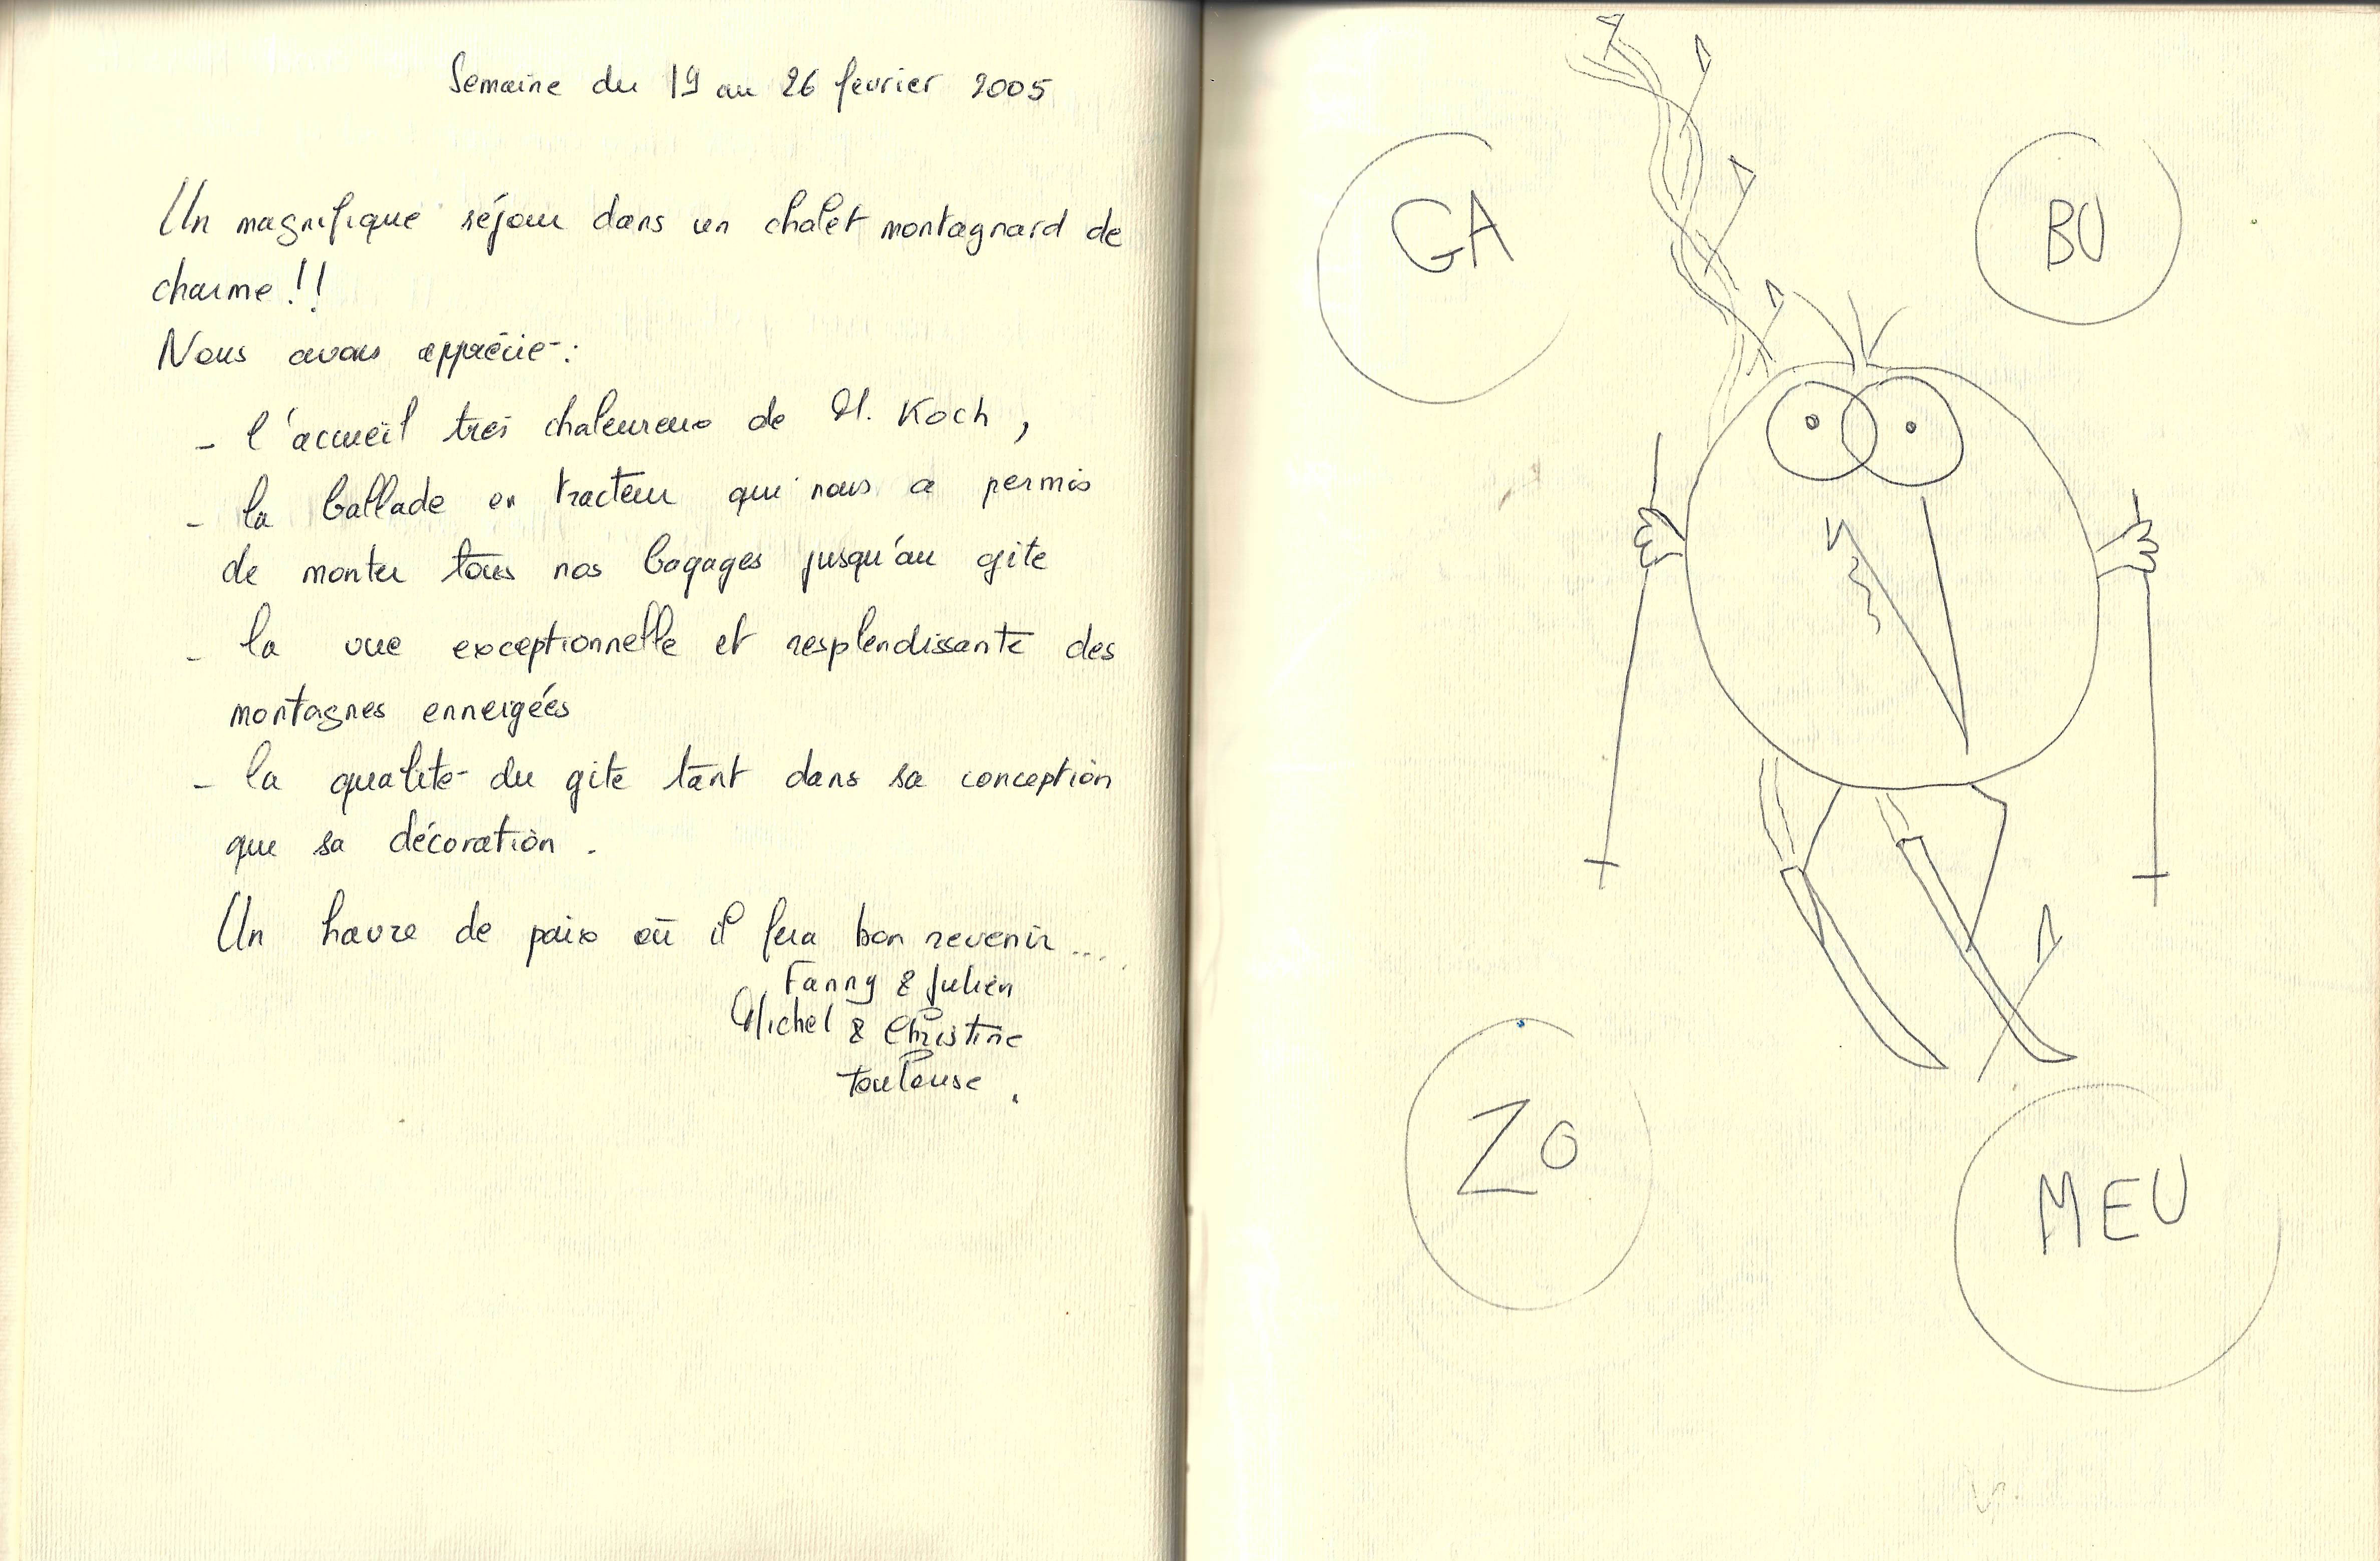 Semaine du 19 au 26 fevrier 2005
Un magnifique séjour dans un chalet montagnard de
charme !!
Nous avons apprécié :
- l'accueil très chaleureux de M. Koch,
- la ballade en tracteur qui nous a permis
de monter tous nos bagages jusqu'au gite
- la vue exceptionnelle et resplendissante des
montagnes enneigées
- la qualité du gite tant dans sa conception
que sa décoration.
Un havre de paix où il fera bon revenir....
Fanny & Julien
Michel & Christine
Toulouse.
GA
BU
ZO
MEU